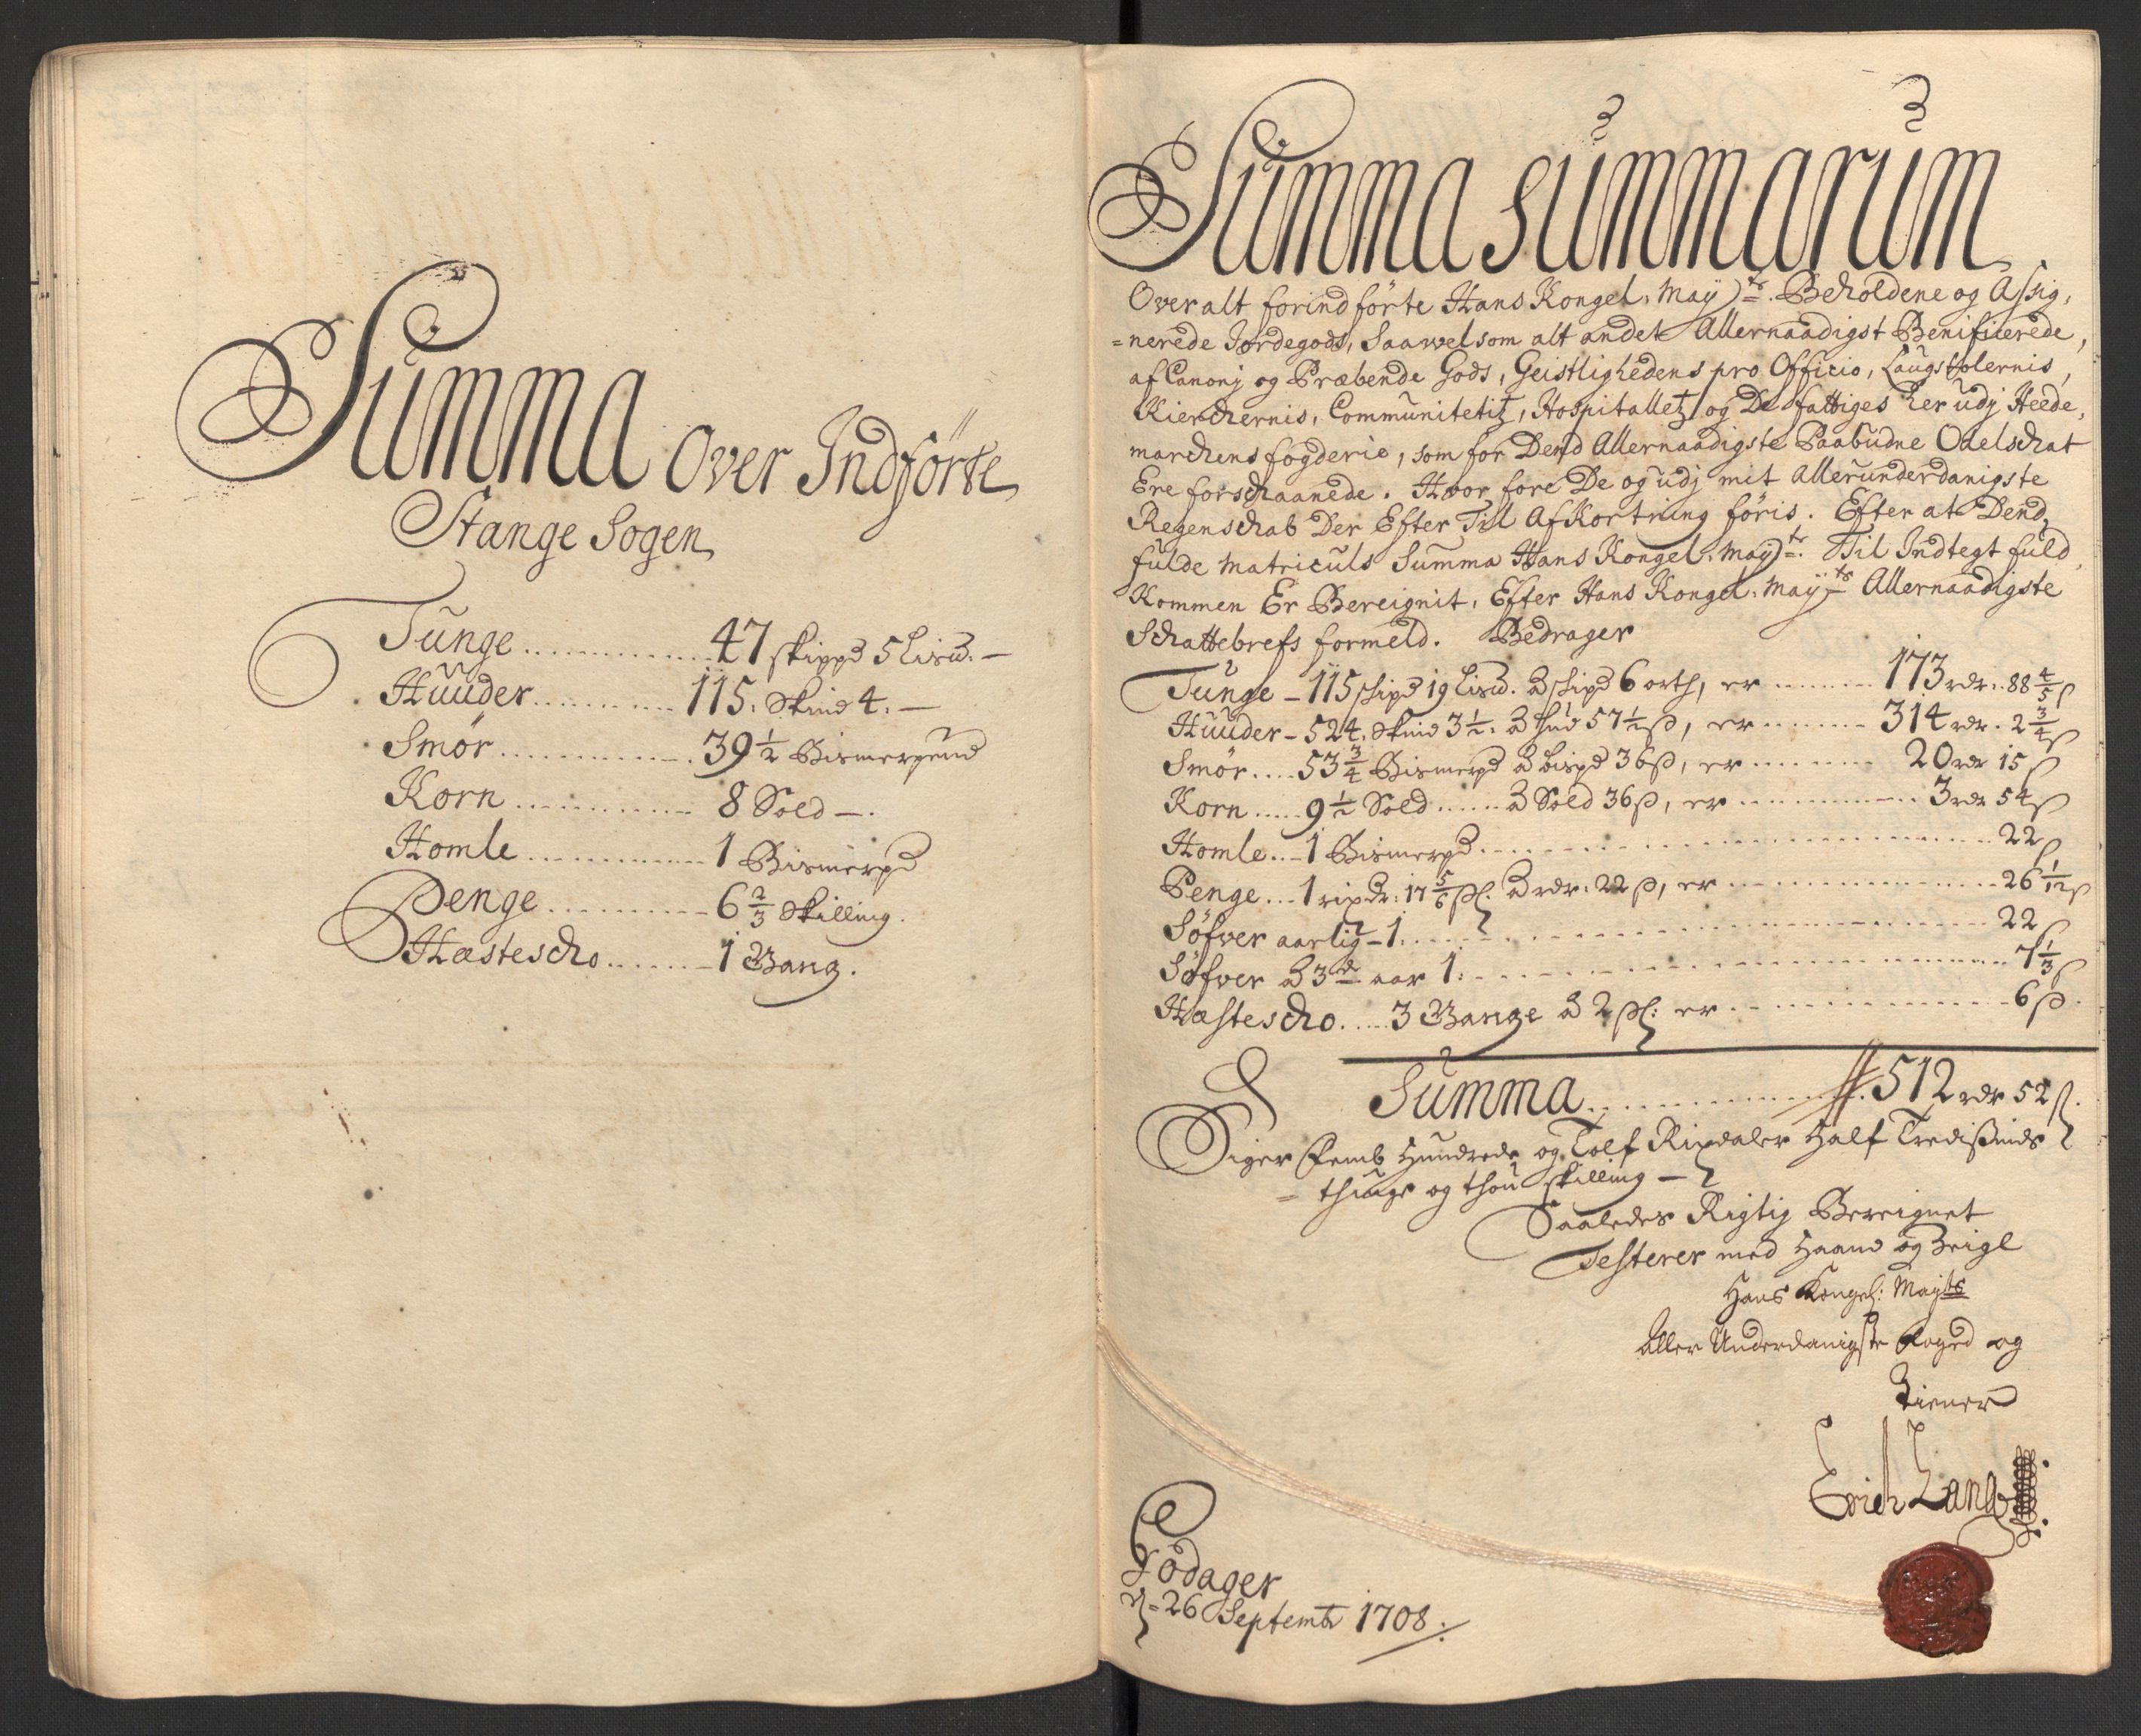 Summa Over Indførte
Stange Sogen
Tunge ............ 47 skippd 5 Lisd. —
Huuder .......... 115. Skind 4. —
Smør ............ 39 1/2 Bismerpund
Korn ............ 8 Sold —.
Homle ............ 1 Bismerpd
Penge .......... 6 2/3 Skilling.
Hæstescho ....... 1 Gang.
Summa summarum
Over alt forindførte Hans Kongel. Maÿts. Beholdene og Assig,
=nerede Jordegods, Saawelsom alt andet Allernaadigst Benificerede,
af Canonj og Præbende Gods, Geistlighedens pro Officio, Laugstolernis,
Kierchernis, Communitetitz, Hospitalletz og De fattiges her udj Heede,
marchens fogderie, som for Dend Allernaadigste Paabudne Odelschat
Ere forschaanede. Hvor fore De og udj mit Allerunderdanigste
Regenschab Der Efter Til Afkortning føris. Efter at Dend
fulde Matriculs Summa Hans Kongel. Maÿts. Til Indtegt fuld,
Kommen Er Bereignit, Efter Hans Kongel. Maÿts Allernaadigste
Schattebrefs formeld. Bedrager
Tunge – 115 skipd 19 Lisd. à skipd 6 orth, er ........ 173 rdr. 88 4/5 s
Huuder – 524. Skind 3 1/2. à hud 57 1/2 s, er ........ 314 rdr. 2 3/4 s
Smør .... 53 3/4 Bismerpd à bispd 36 s, er ........ 20 rdr 15 s
Korn ..... 9 1/2 Sold ..... à Sold 36 s, er ........ 3 rdr 54 s
Homle ... 1 Bismerpd ........ 22 s
Penge ... 1 rixdr: 17 5/6 s. à rdr. 22 s, er ........ 26 1/12 s
Søfver aarlig – 1. ........ 22 s
Søfver à 3de aar 1. ........ 7 1/3 s
Hæstescho ..... 3 Gange à 2 s: er ........ 6 s.
Summa ........ 512 rdr 52 s.
Siger Femb Hundrede og Tolf Rixdaler Half Tredisinds
= thiuge og thou skilling —
Saaledes Rigtig Bereignet
Testerer med Haand og Zeigl
Hans Kongel: Mayts
Aller Underdanigste Foged og
Tiener
Erich Lang
Fodager
d = 26 Septembr 1708.